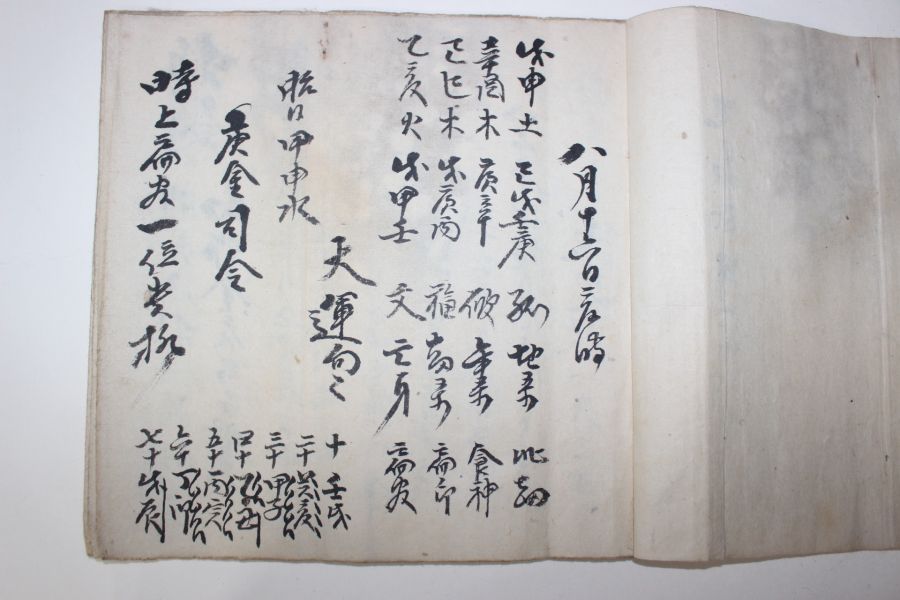 八月十六日亥時
戊申土 己戊壬庚 孤 地杀 比劫
辛酉木 庚辛 破 年杀 食神
己巳木 戊庚丙 福 劫杀 偏印
乙亥火 戊甲壬 文 亡身 偏官
天運
胎日甲申水
庚金司令
時上偏官一位貴格
十 壬戌
二十 癸亥
三十 甲子
四十 乙丑
五十 丙寅
六十 丁卯
七十 戊辰